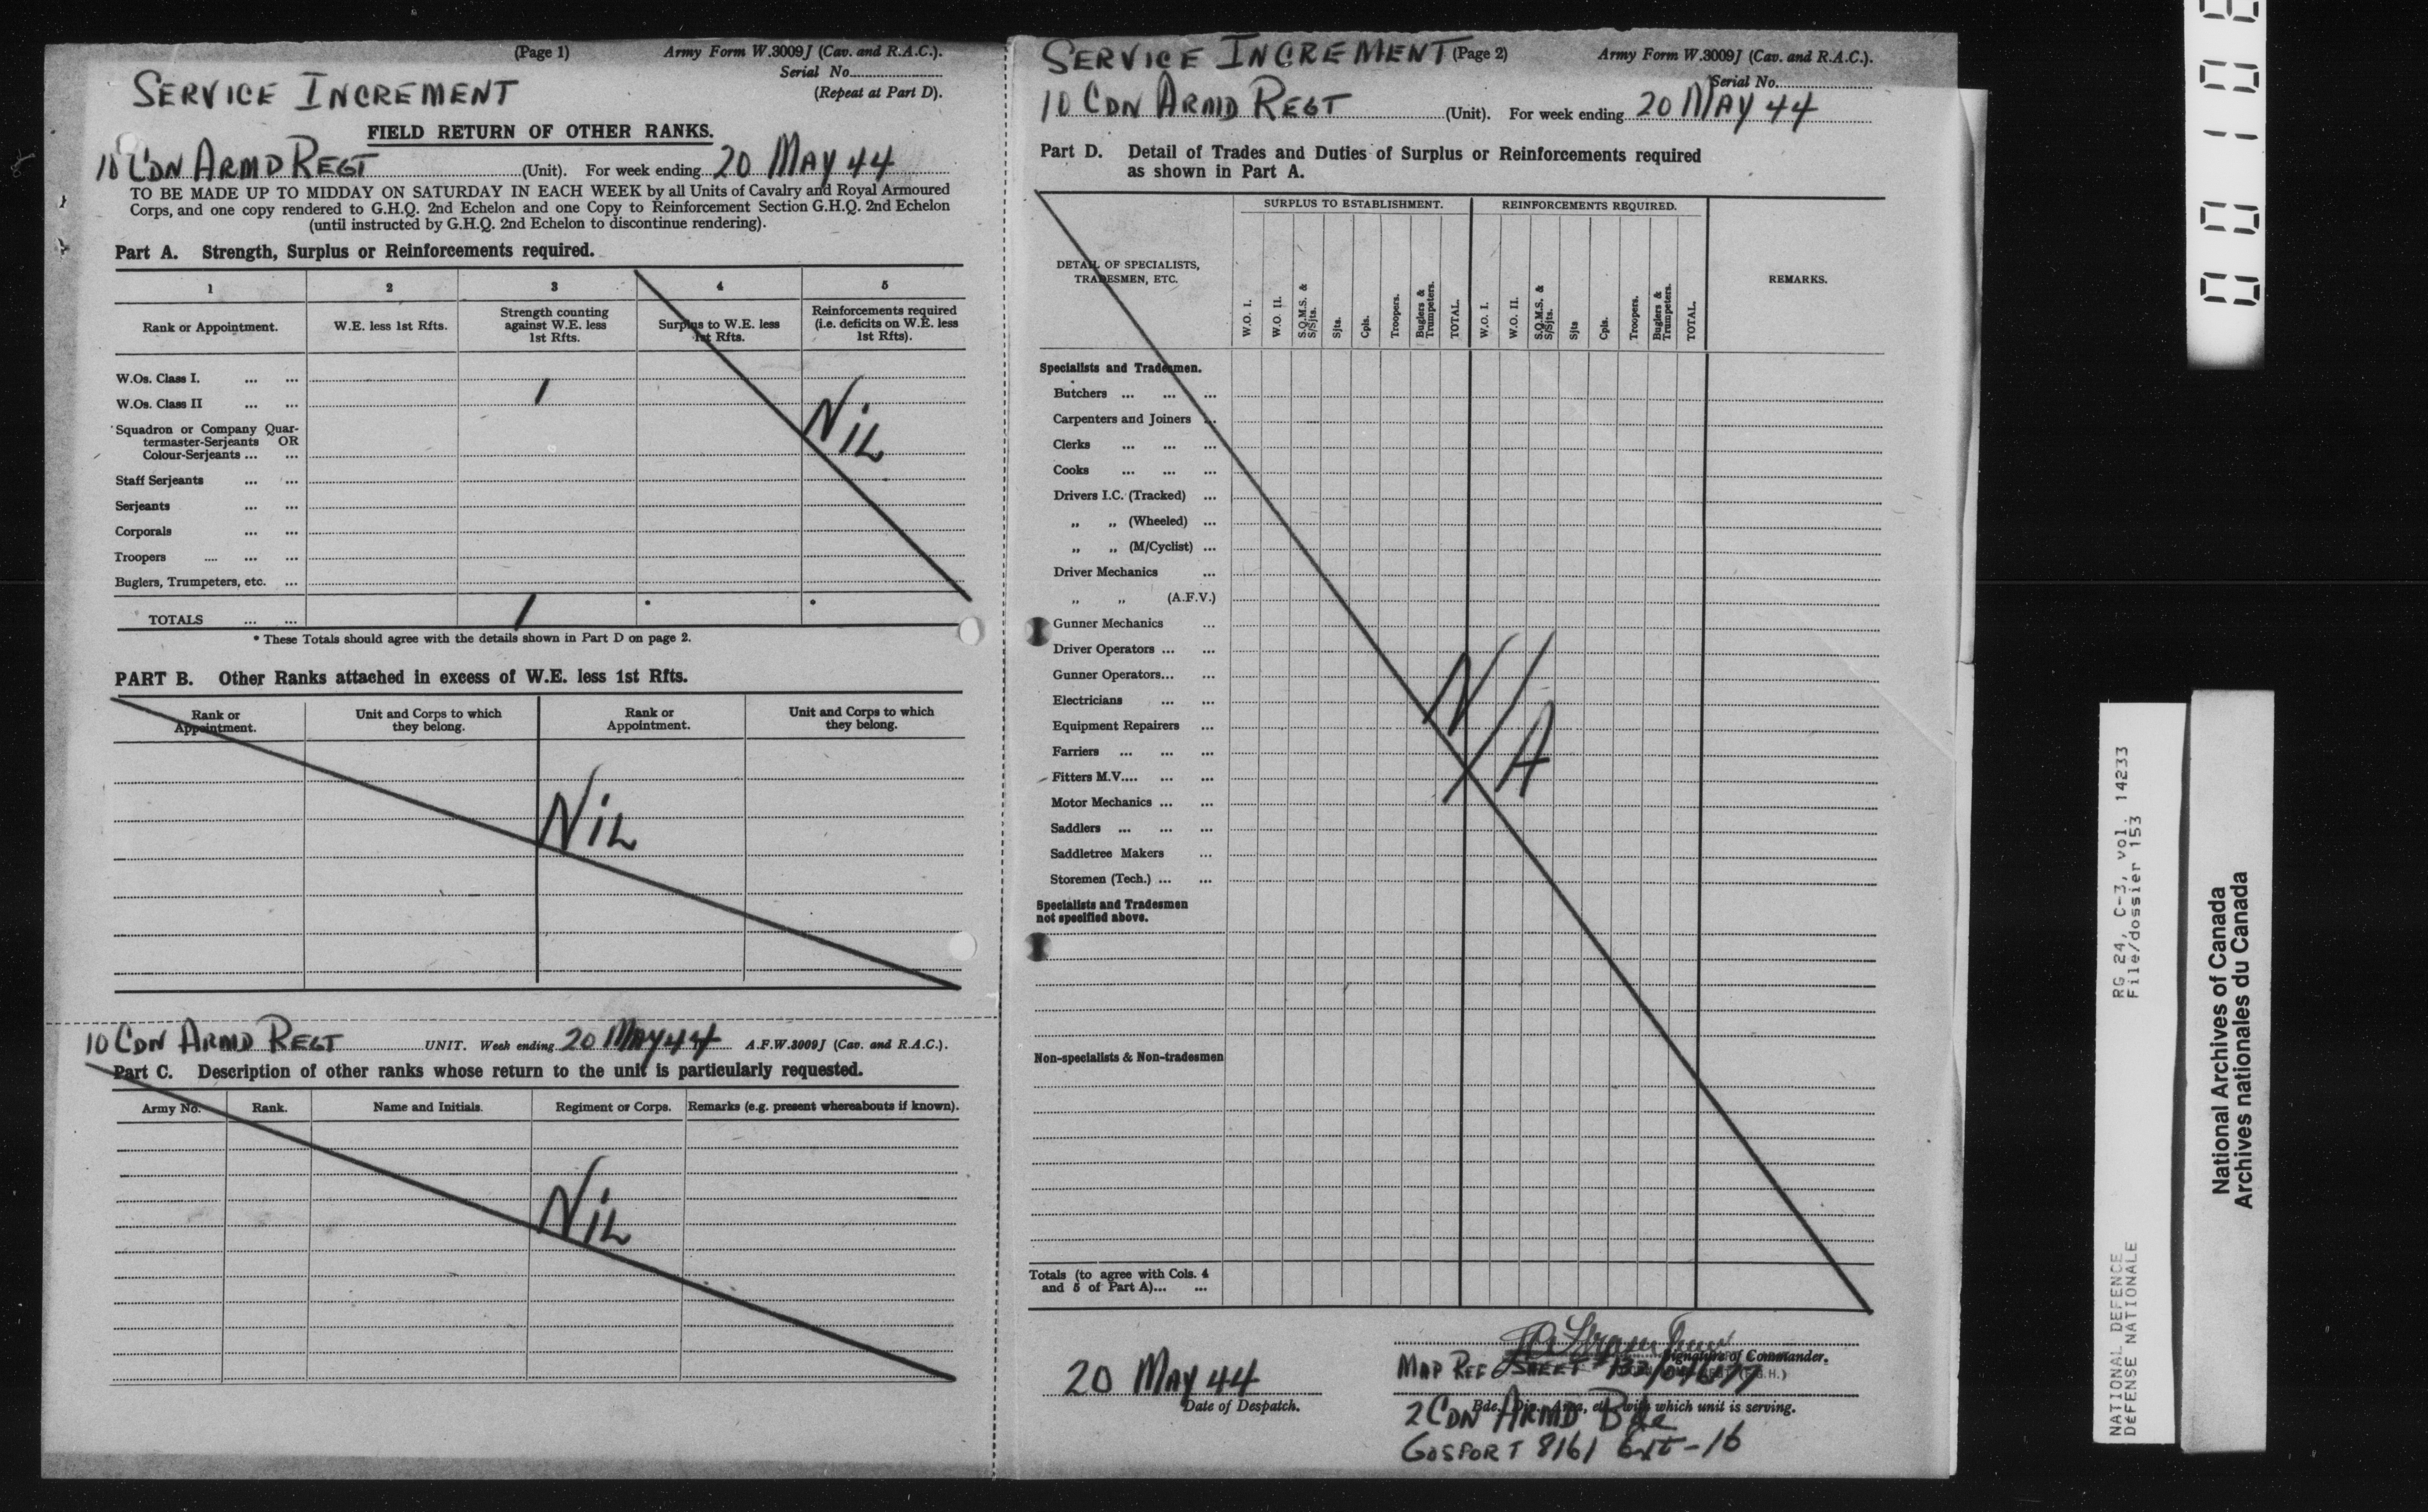 (Page 1) Army Form W.3009J (Cav. and R.A.C.).
Serial No.
(Repeat at Part D).
SERVICE INCREMENT
FIELD RETURN OF OTHER RANKS.
10 CDN ARMD REGT (Unit). For week ending 20 MAY 44
TO BE MADE UP TO MIDDAY ON SATURDAY IN EACH WEEK by all Units of Cavalry and Royal Armoured
Corps, and one copy rendered to G.H.Q. 2nd Echelon and one Copy to Reinforcement Section G.H.Q. 2nd Echelon
(until instructed by G.H.Q. 2nd Echelon to discontinue rendering).
Part A. Strength, Surplus or Reinforcements required.
1 2 3 4 5
Rank or Appointment. W.E. less 1st Rfts. Strength counting against W.E. less 1st Rfts. Surplus to W.E. less 1st Rfts. Reinforcements required (i.e. deficits on W.E. less 1st Rfts).
W.Os. Class I. ... ... 1
W.Os. Class II ... ...
NIL
Squadron or Company Quar-
termaster-Serjeants OR
Colour-Serjeants ... ...
Staff Serjeants ... ...
Serjeants ... ...
Corporals ... ...
Troopers .... ... ...
Buglers, Trumpeters, etc. ...
TOTALS ... ... 1 * *
* These Totals should agree with the details shown in Part D on page 2.
PART B. Other Ranks attached in excess of W.E. less 1st Rfts.
Rank or Appointment. Unit and Corps to which they belong. Rank or Appointment. Unit and Corps to which they belong.
NIL
10 CDN ARMD REGT UNIT. Week ending 20 MAY 44 A.F.W.3009J (Cav. and R.A.C.).
Part C. Description of other ranks whose return to the unit is particularly requested.
Army No. Rank. Name and Initials. Regiment or Corps. Remarks (e.g. present whereabouts if known).
NIL
SERVICE INCREMENT (Page 2) Army Form W.3009J (Cav. and R.A.C.).
Serial No.
10 CDN ARMD REGT (Unit). For week ending 20 MAY 44
Part D. Detail of Trades and Duties of Surplus or Reinforcements required
as shown in Part A.
SURPLUS TO ESTABLISHMENT. REINFORCEMENTS REQUIRED.
DETAIL OF SPECIALISTS,
TRADESMEN, ETC.
REMARKS.
W.O. I. W.O. II. S.Q.M.S. & S/Sjts. Sjts. Cpls. Troopers. Buglers & Trumpeters. TOTAL. W.O. I. W.O. II. S.Q.M.S. & S/Sjts. Sjts Cpls. Troopers. Buglers & Trumpeters. TOTAL.
Specialists and Tradesmen.
Butchers ... ... ...
Carpenters and Joiners ...
Clerks ... ... ...
Cooks ... ... ...
Drivers I.C. (Tracked) ...
„ „ (Wheeled) ...
„ „ (M/Cyclist) ...
Driver Mechanics ...
„ „ (A.F.V.)
Gunner Mechanics ...
Driver Operators ... ...
Gunner Operators... ...
Electricians ... ...
Equipment Repairers ...
Farriers ... ... ...
Fitters M.V.... ... ...
Motor Mechanics ... ...
Saddlers ... ... ...
Saddletree Makers ...
Storemen (Tech.) ... ...
N/A
Specialists and Tradesmen
not specified above.
Non-specialists & Non-tradesmen
Totals (to agree with Cols. 4
and 5 of Part A)... ...
Signature of Commander.
MAP REF SHEET
20 MAY 44
Date of Despatch.
Bde., Div., Area, etc., with which unit is serving.
2 CDN ARMD Bde
GOSPORT 8161 Ext-16
RG 24, C-3, vol. 14233
File/dossier 153
NATIONAL DEFENCE
DÉFENSE NATIONALE
National Archives of Canada
Archives nationales du Canada